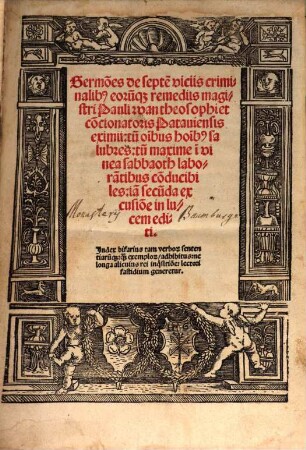 Sermões de septē viciis crimi
nalibꝰ eorūqꝫ remediis magi-
stri Pauli wan theosophi et
cōcionatoris Pataviensis
eximii: tū oibus hoibꝰ sa
lubres: tū maxime ī vi
nea sabbaoth labo-
rātibus cōducibi
les: iā secūda ex
cusiōe in lu-
cem edi-
ti.
Monastery Baumburge
Index bifarius tam verborꝫ senten
tiarūqꝫ: qꝫ exemplorꝫ / adhibitus: ne
longa alicuius rei inqsitiōe: lectori
fastidium generetur.